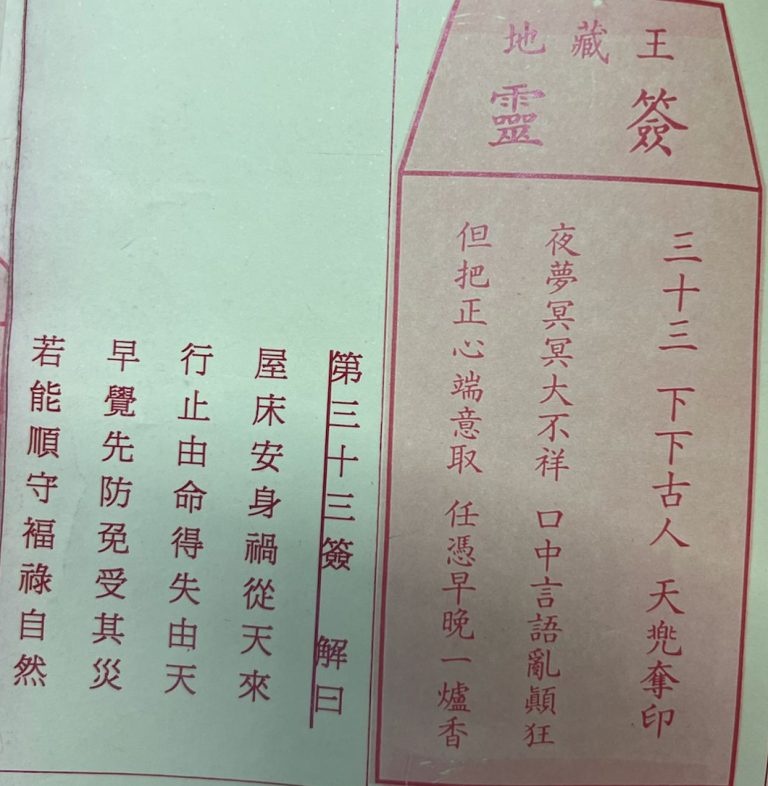 地藏王
靈簽
三十三 下下古人 天兠奪印
夜夢冥冥大不祥 口中言語亂顛狂
但把正心端意取 任憑早晚一爐香
第三十三簽 解曰
屋床安身禍從天來
行止由命得失由天
早覺先防免受其災
若能順守福祿自然